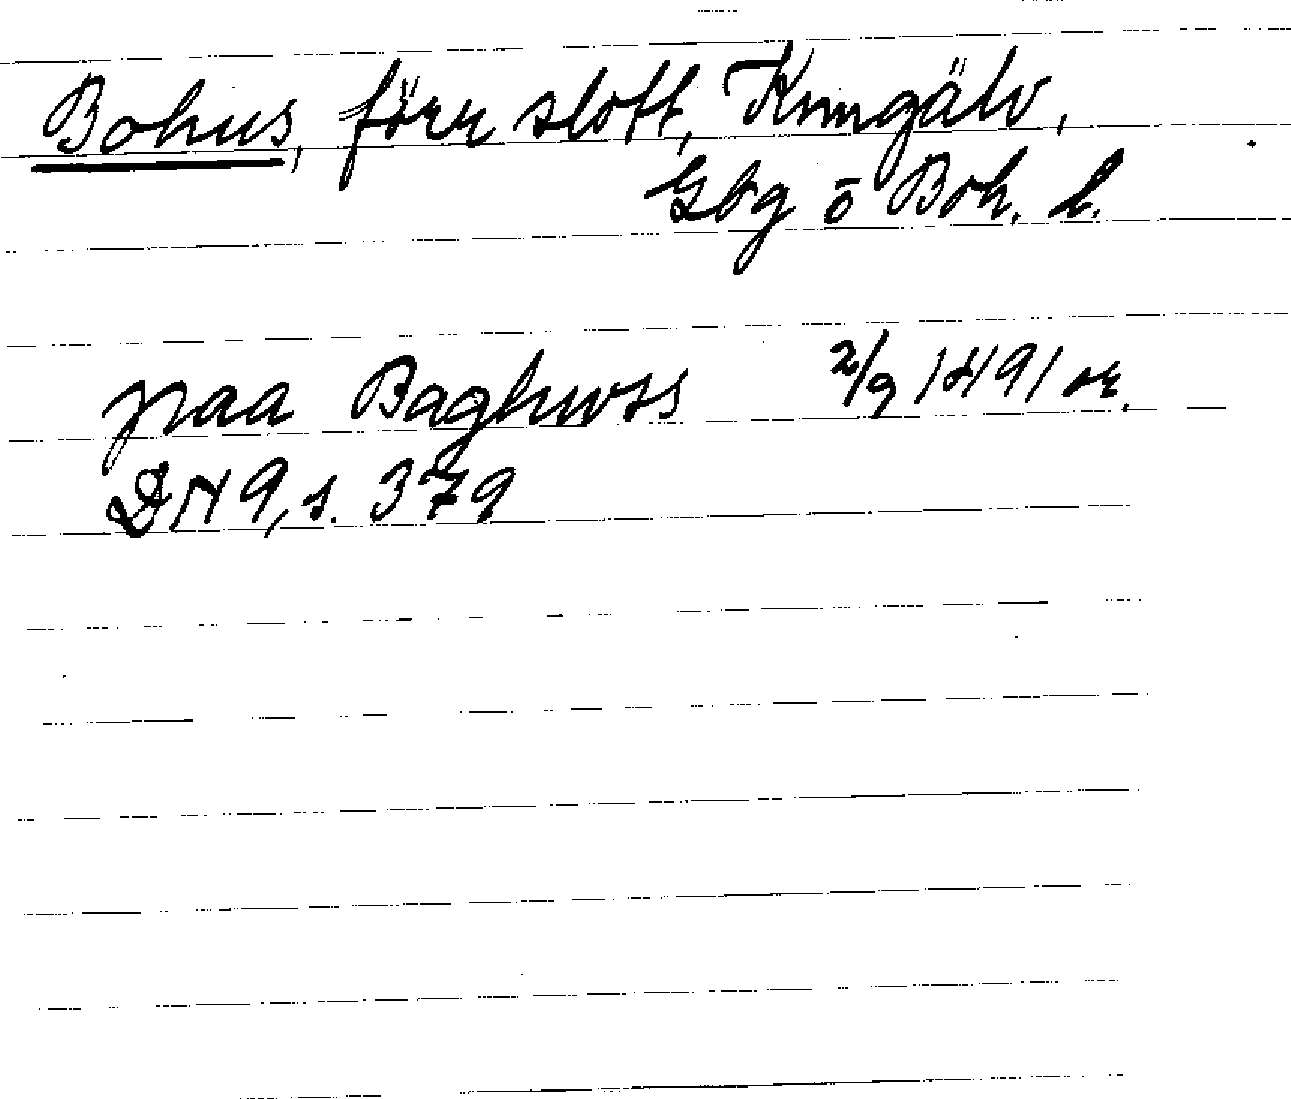 Bohus, förr slott, Kungälv,
Gbg o Boh. l.
paa Baghwss 2/9 1491 or.
DN 9, s. 379